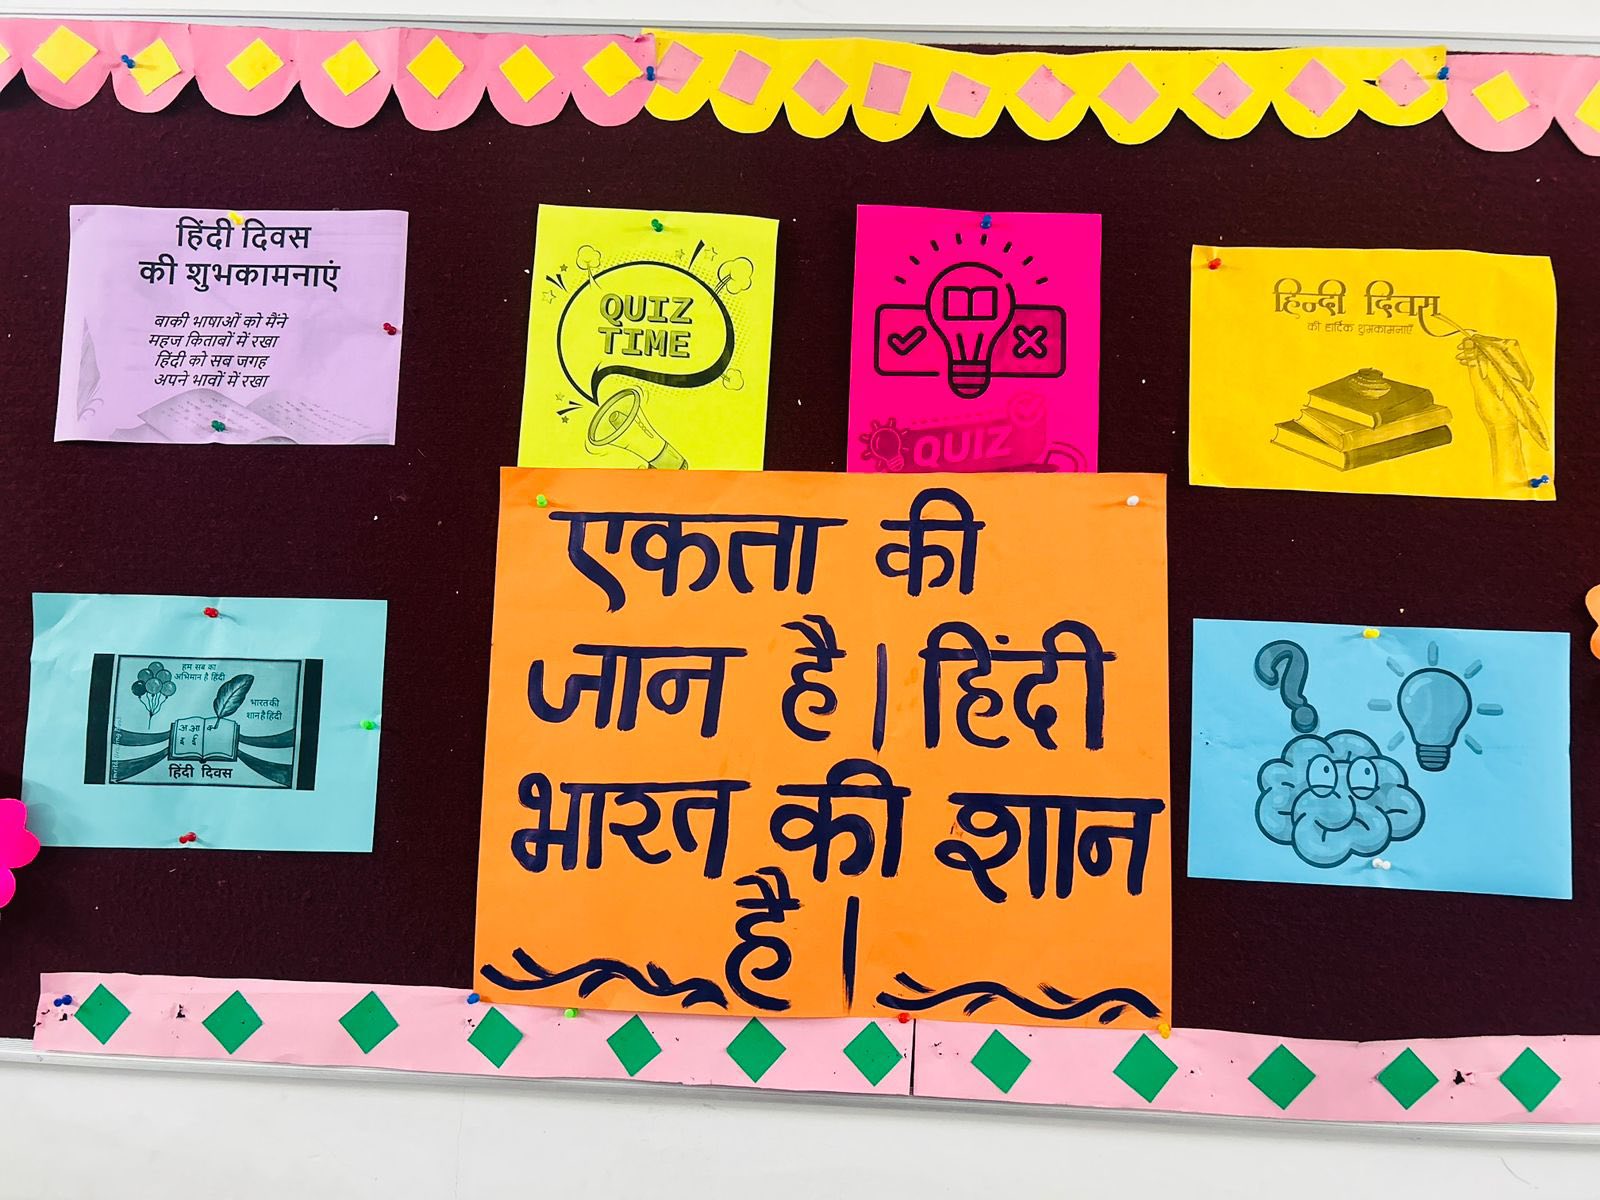 हिंदी दिवस
की शुभकामनाएं
बाकी भाषाओं को मैंने
महज किताबों में रखा
हिंदी को सब जगह
अपने भावों में रखा
QUIZ
TIME
QUIZ
हिन्दी दिवस
की हार्दिक शुभकामनाएँ
हम सब का
अभिमान है हिंदी
भारत की
शान है हिंदी
अ आ
हिंदी दिवस
एकता की
जान है | हिंदी
भारत की शान
है |